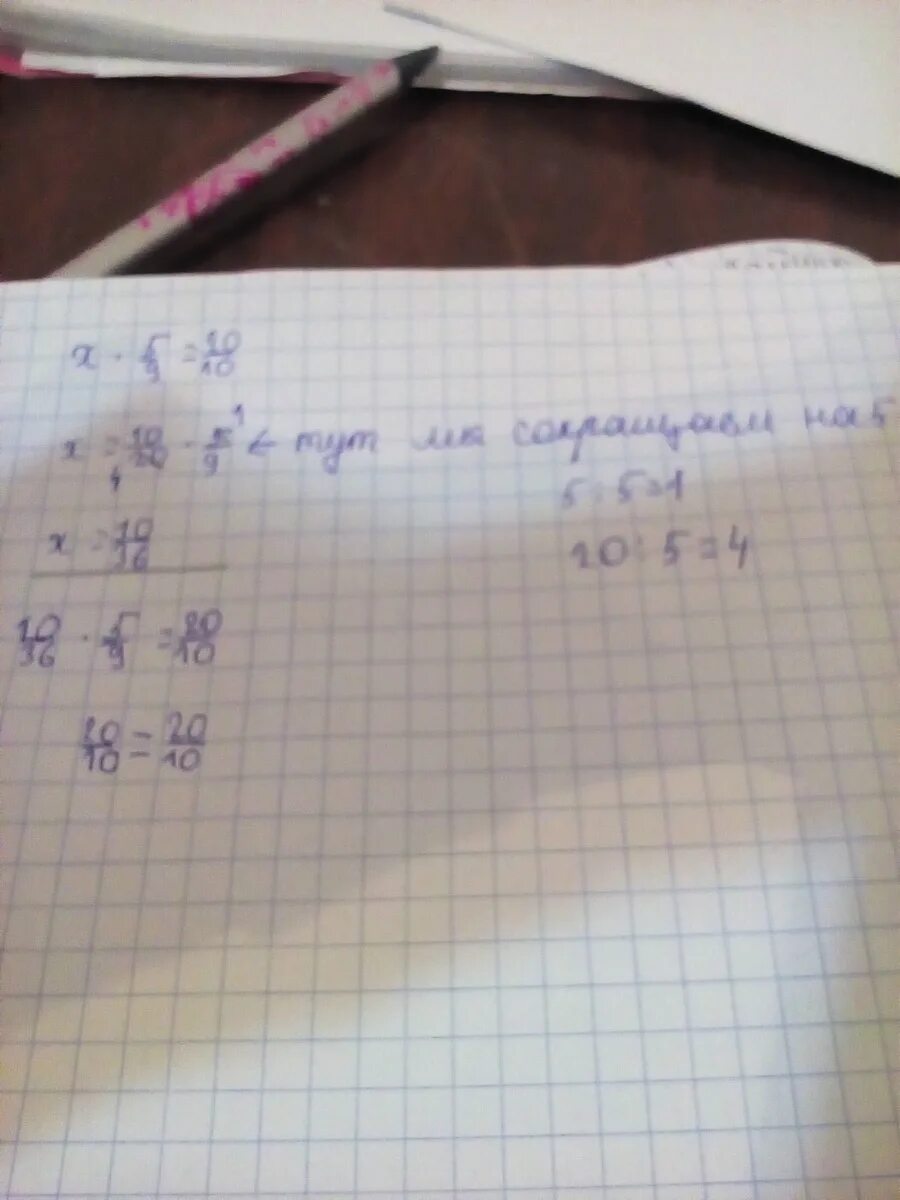 x · 5/9 = 20/10
x = 10/20 · 5/9 ← тут мы сокращаем на 5
4 1
5 : 5 = 1
x = 10/36
20 : 5 = 4
10/36 · 5/9 = 20/10
20/10 = 20/10